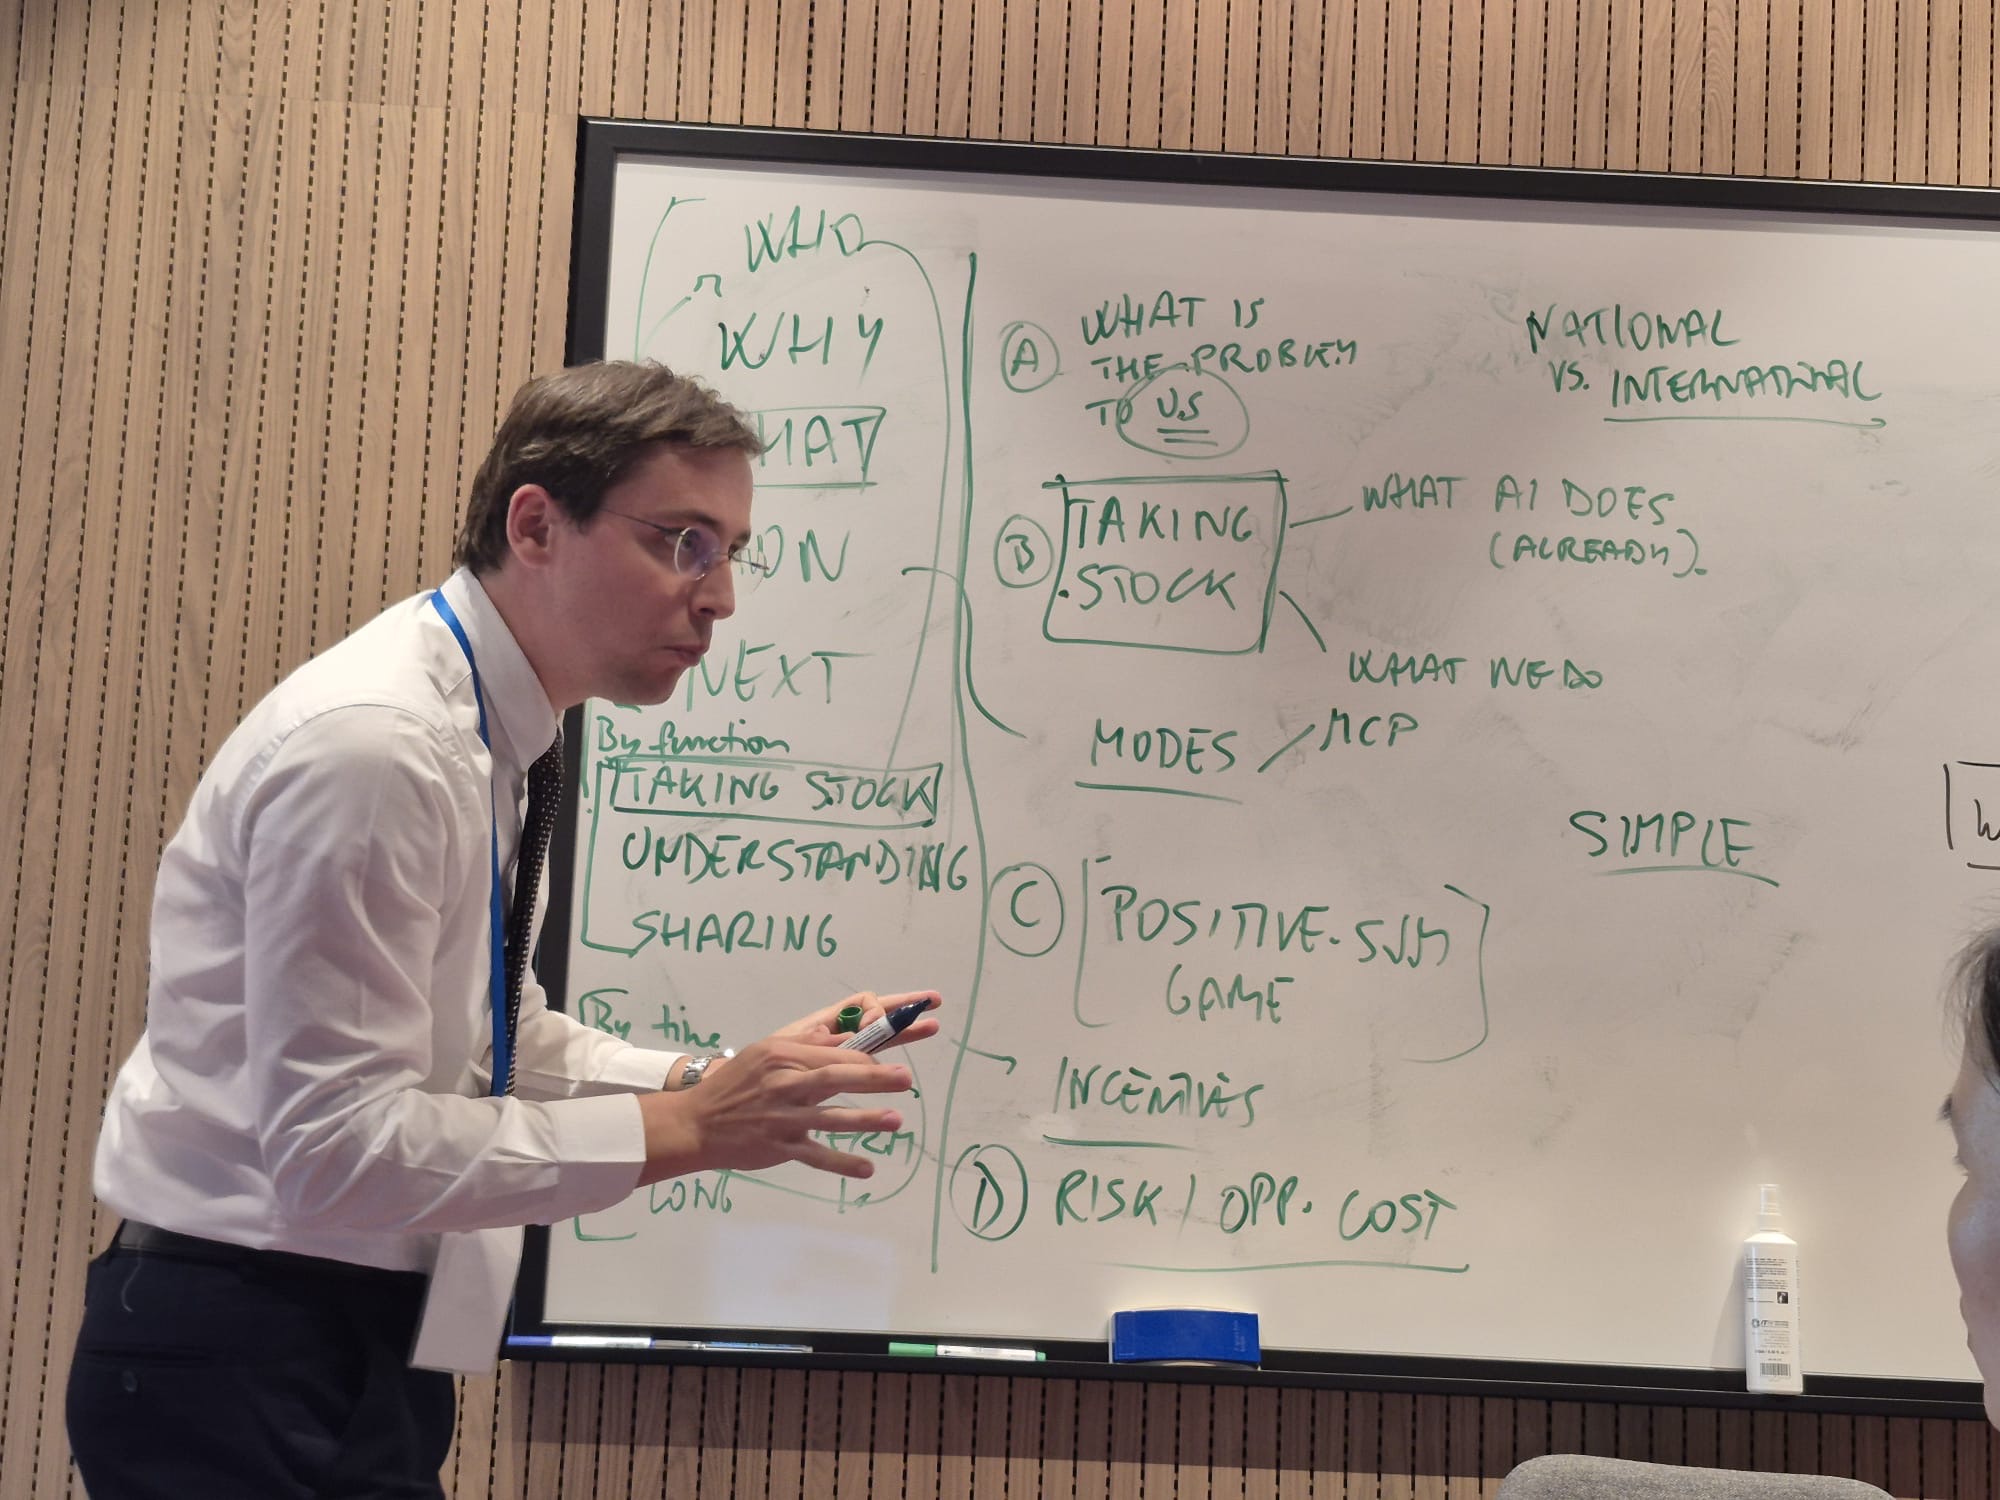 WHO
WHY
HAT
NEXT
By function
TAKING STOCK
UNDERSTANDING
SHARING
By time
LONG
A
WHAT IS
THE PROBLEM
TO US
NATIONAL
VS. INTERNATIONAL
B
TAKING
STOCK
WHAT AI DOES
(ALREADY).
WHAT WE DO
MODES / MCP
SIMPLE
C
POSITIVE-SUM
GAME
INCENTIVES
D
RISK / OPP. COST